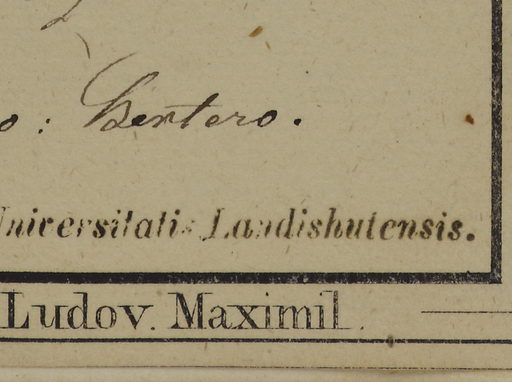 o: Bertero.
Universitatis Landishutensis.
Ludov. Maximil.